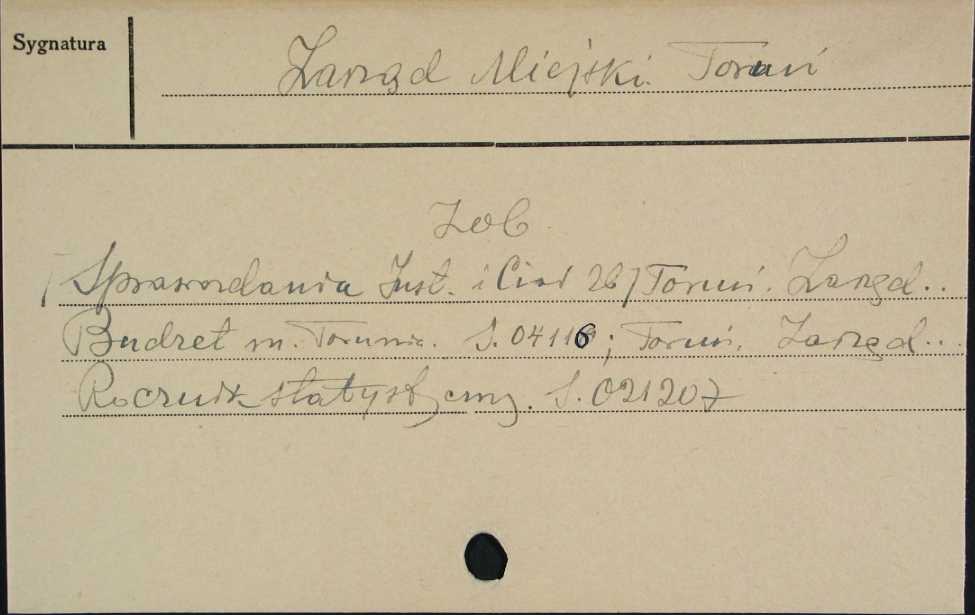 Sygnatura
Zarząd Miejski. Toruń
Zob.
Sprawozdania Inst. i Ciał 267 Toruń. Zarząd..
Budżet m. Torunia. S. 04116; Toruń. Zarząd...
Rocznik statystyczny. S. 021207